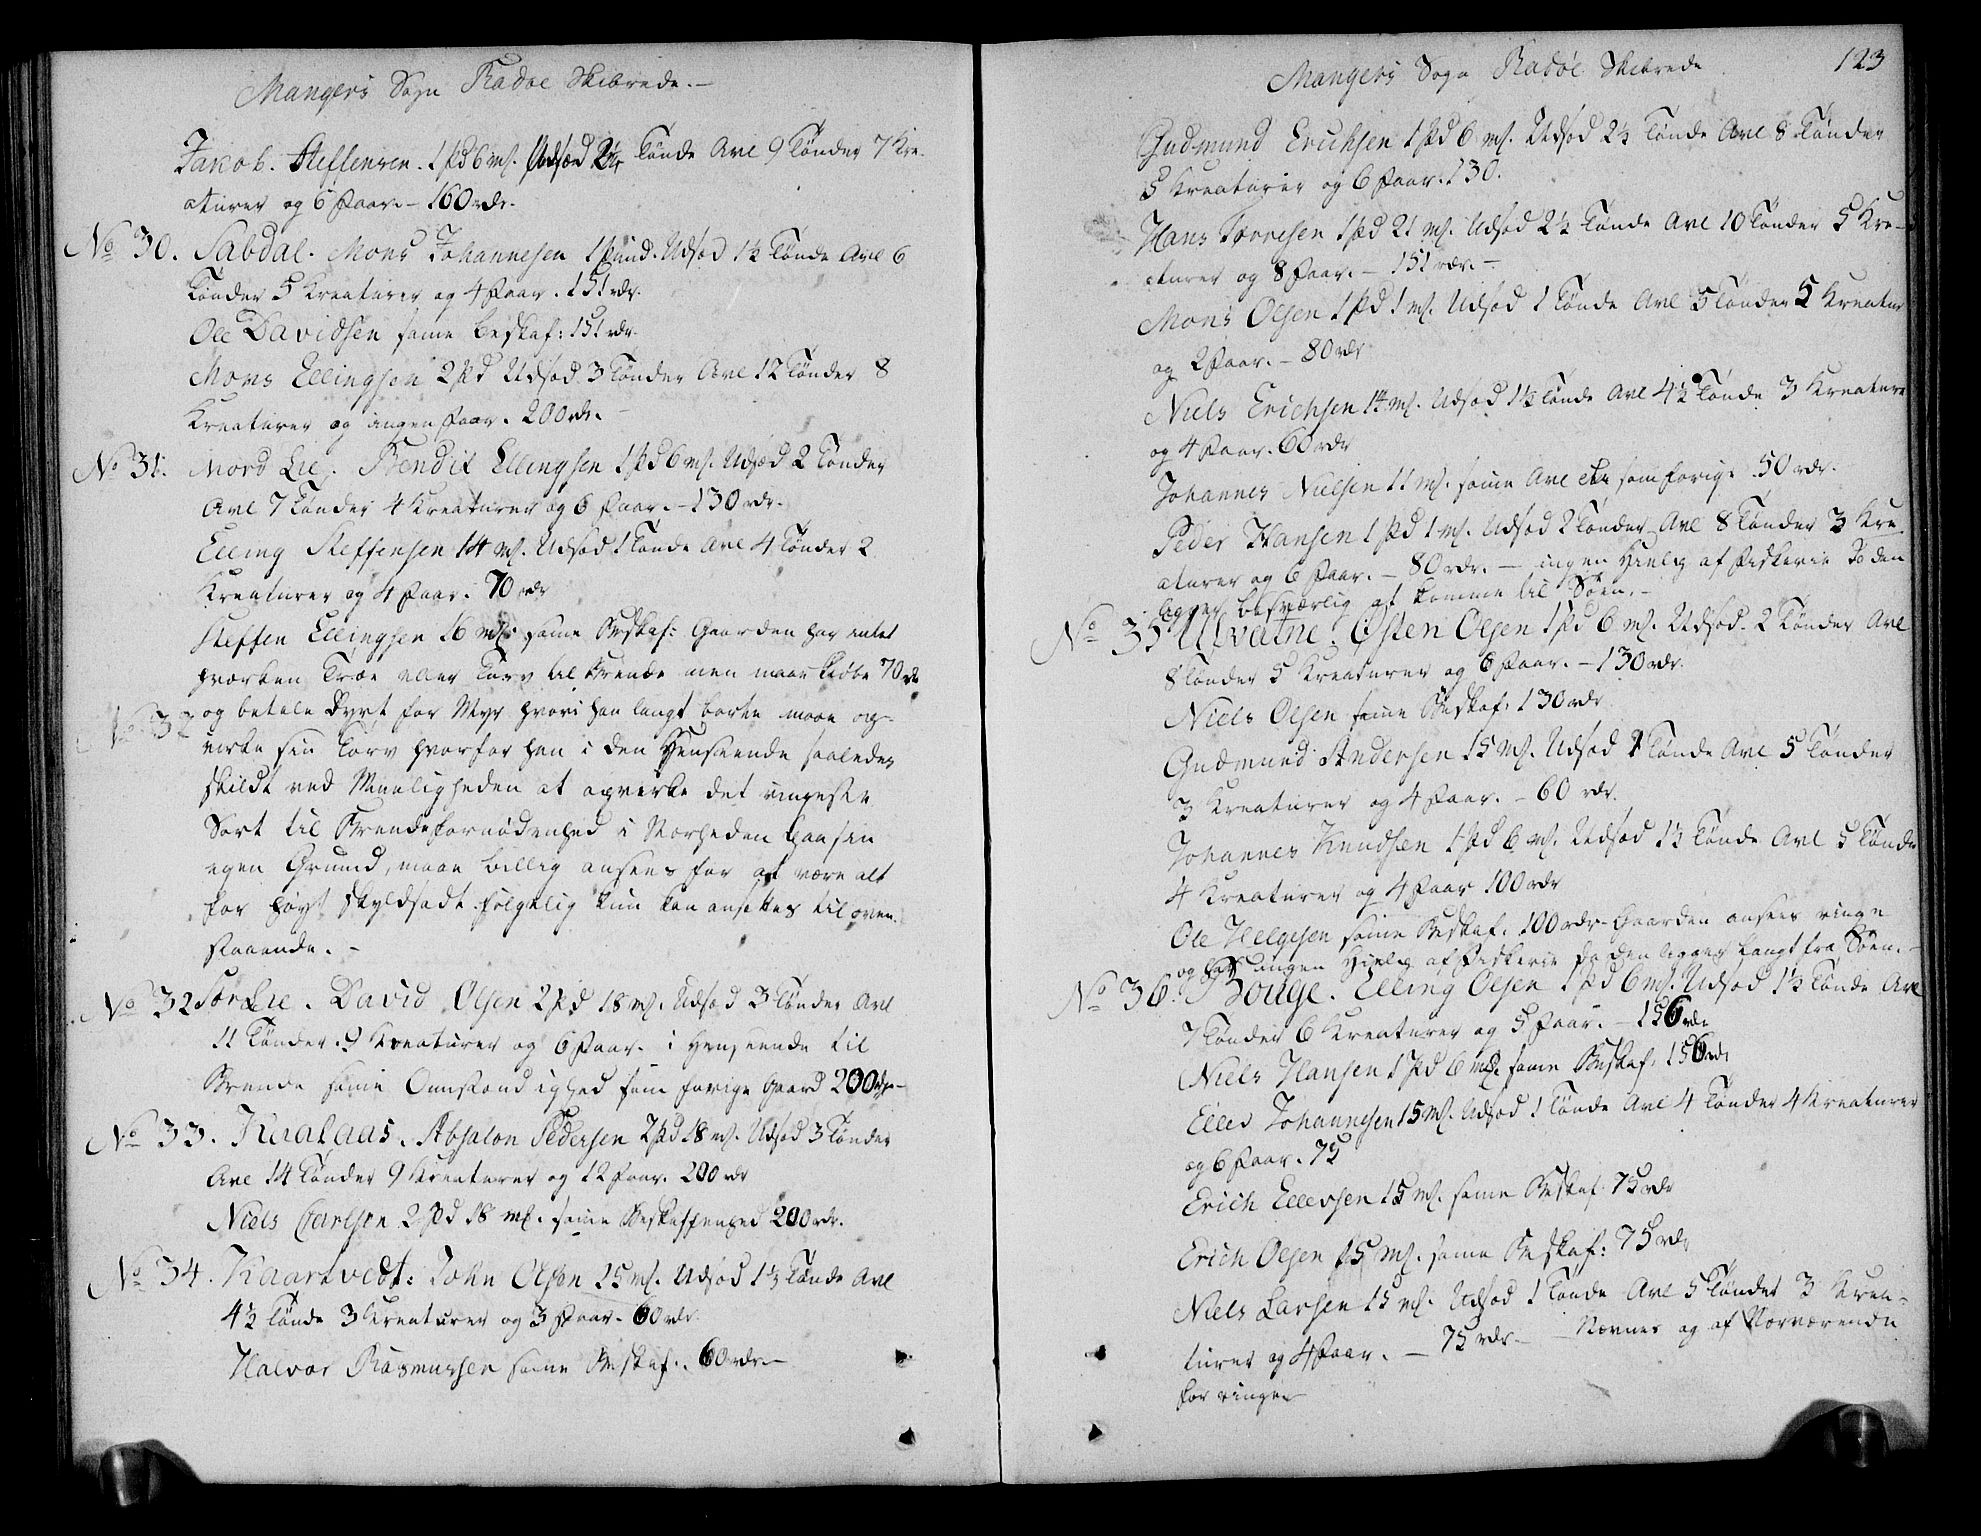 Mangers Sogn Radøe Skibrede.–
Jakob. Steffensen. 1 pd 6 mk. Udsæd 2¼ Tønde Avl 9 Tønder 7 Kre-
aturer og 6 Faar.– 160 rdr.
No 30. Sabdal. Mons Johannesen 1 Pund. Udsæd 1½ Tønde Avl 6
Tønder 5 Kreaturer og 4 Faar. 151 rdr.
Ole Davidsen samme beskaf: 151 rdr.
Mons Ellingsen 2 pd Udsæd 3 Tønder Avl 12 Tønder 8
Kreaturer og ingen Faar. 200 rdr.
No 31. Nord Lie. Bendix Ellingsen 1 pd 6 mk. Udsæd 2 Tønder
Avl 7 Tønder 4 Kreaturer og 6 Faar.– 130 rdr.
Elling Steffensen 14 mk. Udsæd 1 Tønde Avl 4 Tønder 2
Kreaturer og 4 Faar. 70 rdr
Steffen Ellingsen 16 mk. samme Beskaf: Gaarden har intet
hværken Træe eller Torv til Brende men maae kiøbe 70 rdr
og betale dyrt for Myr hvori han langt borte maae op-
virke sin Torv hvorfor han i den Henseende saaledes
skildt ved Mueligheden at opvirke det ringeste
Sort til Brendefornødenhed i Nærheden paa sin
egen Grund, maae billig ansees for at være alt
for høyt skyldsadt følgelig kun kan ansettes til oven-
staaende.–
No 32 Sør Lie. David Olsen 2 pd 18 mk. Udsæd 3 Tønder Avl
11 Tønder. 9 Kreaturer og 6 Faar. i Henseende til
Brende samme Omstændighed som forige Gaard 200 rdr–
No 33. Kaalaas. Absalon Pedersen 2 pd 18 mk. Udsæd 3 Tønder
Avl 14 Tønder 9 Kreaturer og 12 Faar. 200 rdr
Niels Carlsen 2 pd 18 mk. samme Beskaffenhed 200 rdr.
No 34. Kaartvedt: John Olsen 15 mk. Udsæd 1½ Tønde Avl
4½ Tønde 3 Kreaturer og 3 Faar. 60 rdr.
Halvor Rasmussen samme Beskaf. 60 rdr.–
Mangers Sogn Radøe Skibrede 123
Gudmund Erichsen 1 pd 6 mk. Udsæd 2½ Tønde Avl 8 Tønder
5 Kreaturer og 6 Faar. 130.
Hans Torresen 1 pd 21 mk. Udsæd 2½ Tønde Avl 10 Tønder 5 Kre-
aturer og 8 Faar.– 151 rdr.–
Mons Olsen 1 pd 1 mk. Udsæd 1 Tønde Avl 5 Tønder 5 Kreatur
og 2 Faar.– 80 rdr
Niels Erichsen 14 mk. Udsæd 1½ Tønde Avl 4½ Tønde 3 Kreature
og 4 Faar. 60 rdr
Johannes Nielsen 11 mk. samme Avl etc som forige 50 rdr.
Peder Hansen 1 pd 1 mk. Udsæd 2 Tønder Avl 8 Tønder 3 Kre-
aturer og 6 Faar.– 80 rdr.– ingen Hielp af Fiskerie da den
ligger besværlig at komme til Søen.–
No 35 Ulvatne. Østen Olsen 1 pd 6 mk. Udsæd 2 Tønder Avl
8 Tønder 5 Kreaturer og 6 Faar.– 130 rdr.
Niels Olsen samme Beskaf: 130 rdr
Gudmund Andersen 15 mk. Udsæd 1 Tønde Avl 5 Tønder
3 Kreaturer og 4 Faar.– 60 rdr.
Johannes Knudsen 1 pd 6 mk. Udsæd 1½ Tønde Avl 5 Tønde
4 Kreaturer og 4 Faar 100 rdr
Ole Helgesen samme Beskaf. 100 rdr– Gaarden ansees ringe
og har ingen Hielp af Fiskerie da den ligger langt fra Søen.–
No 36. Bouge. Elling Olsen 1 pd 6 mk. Udsæd 1½ Tønde Avl
7 Tønder 6 Kreaturer og 5 Faar.– 156 rdr
Niels Hansen 1 pd 6 mk. samme Beskaf. 156 rdr
Ellev Johannesen 15 mk. Udsæd 1 Tønde Avl 4 Tønder 4 Kreaturer
og 6 Faar. 75
Erich Ellevsen 15 mk. samme Beskaf: 75 rdr
Erich Olsen 15 mk. samme Beskaf: 75 rdr
Niels Larsen 15 mk. Udsæd 1 Tønde Avl 5 Tønder 3 Krea-
turer og 4 Faar.– 75 rdr.– Nævnes og af Nærværende
for ringe–